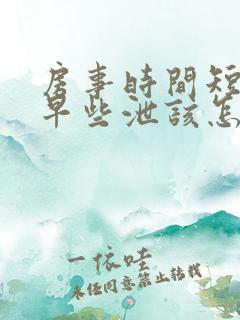 房事時間短
早些泄該怎
一依哇
未经同意禁止转载